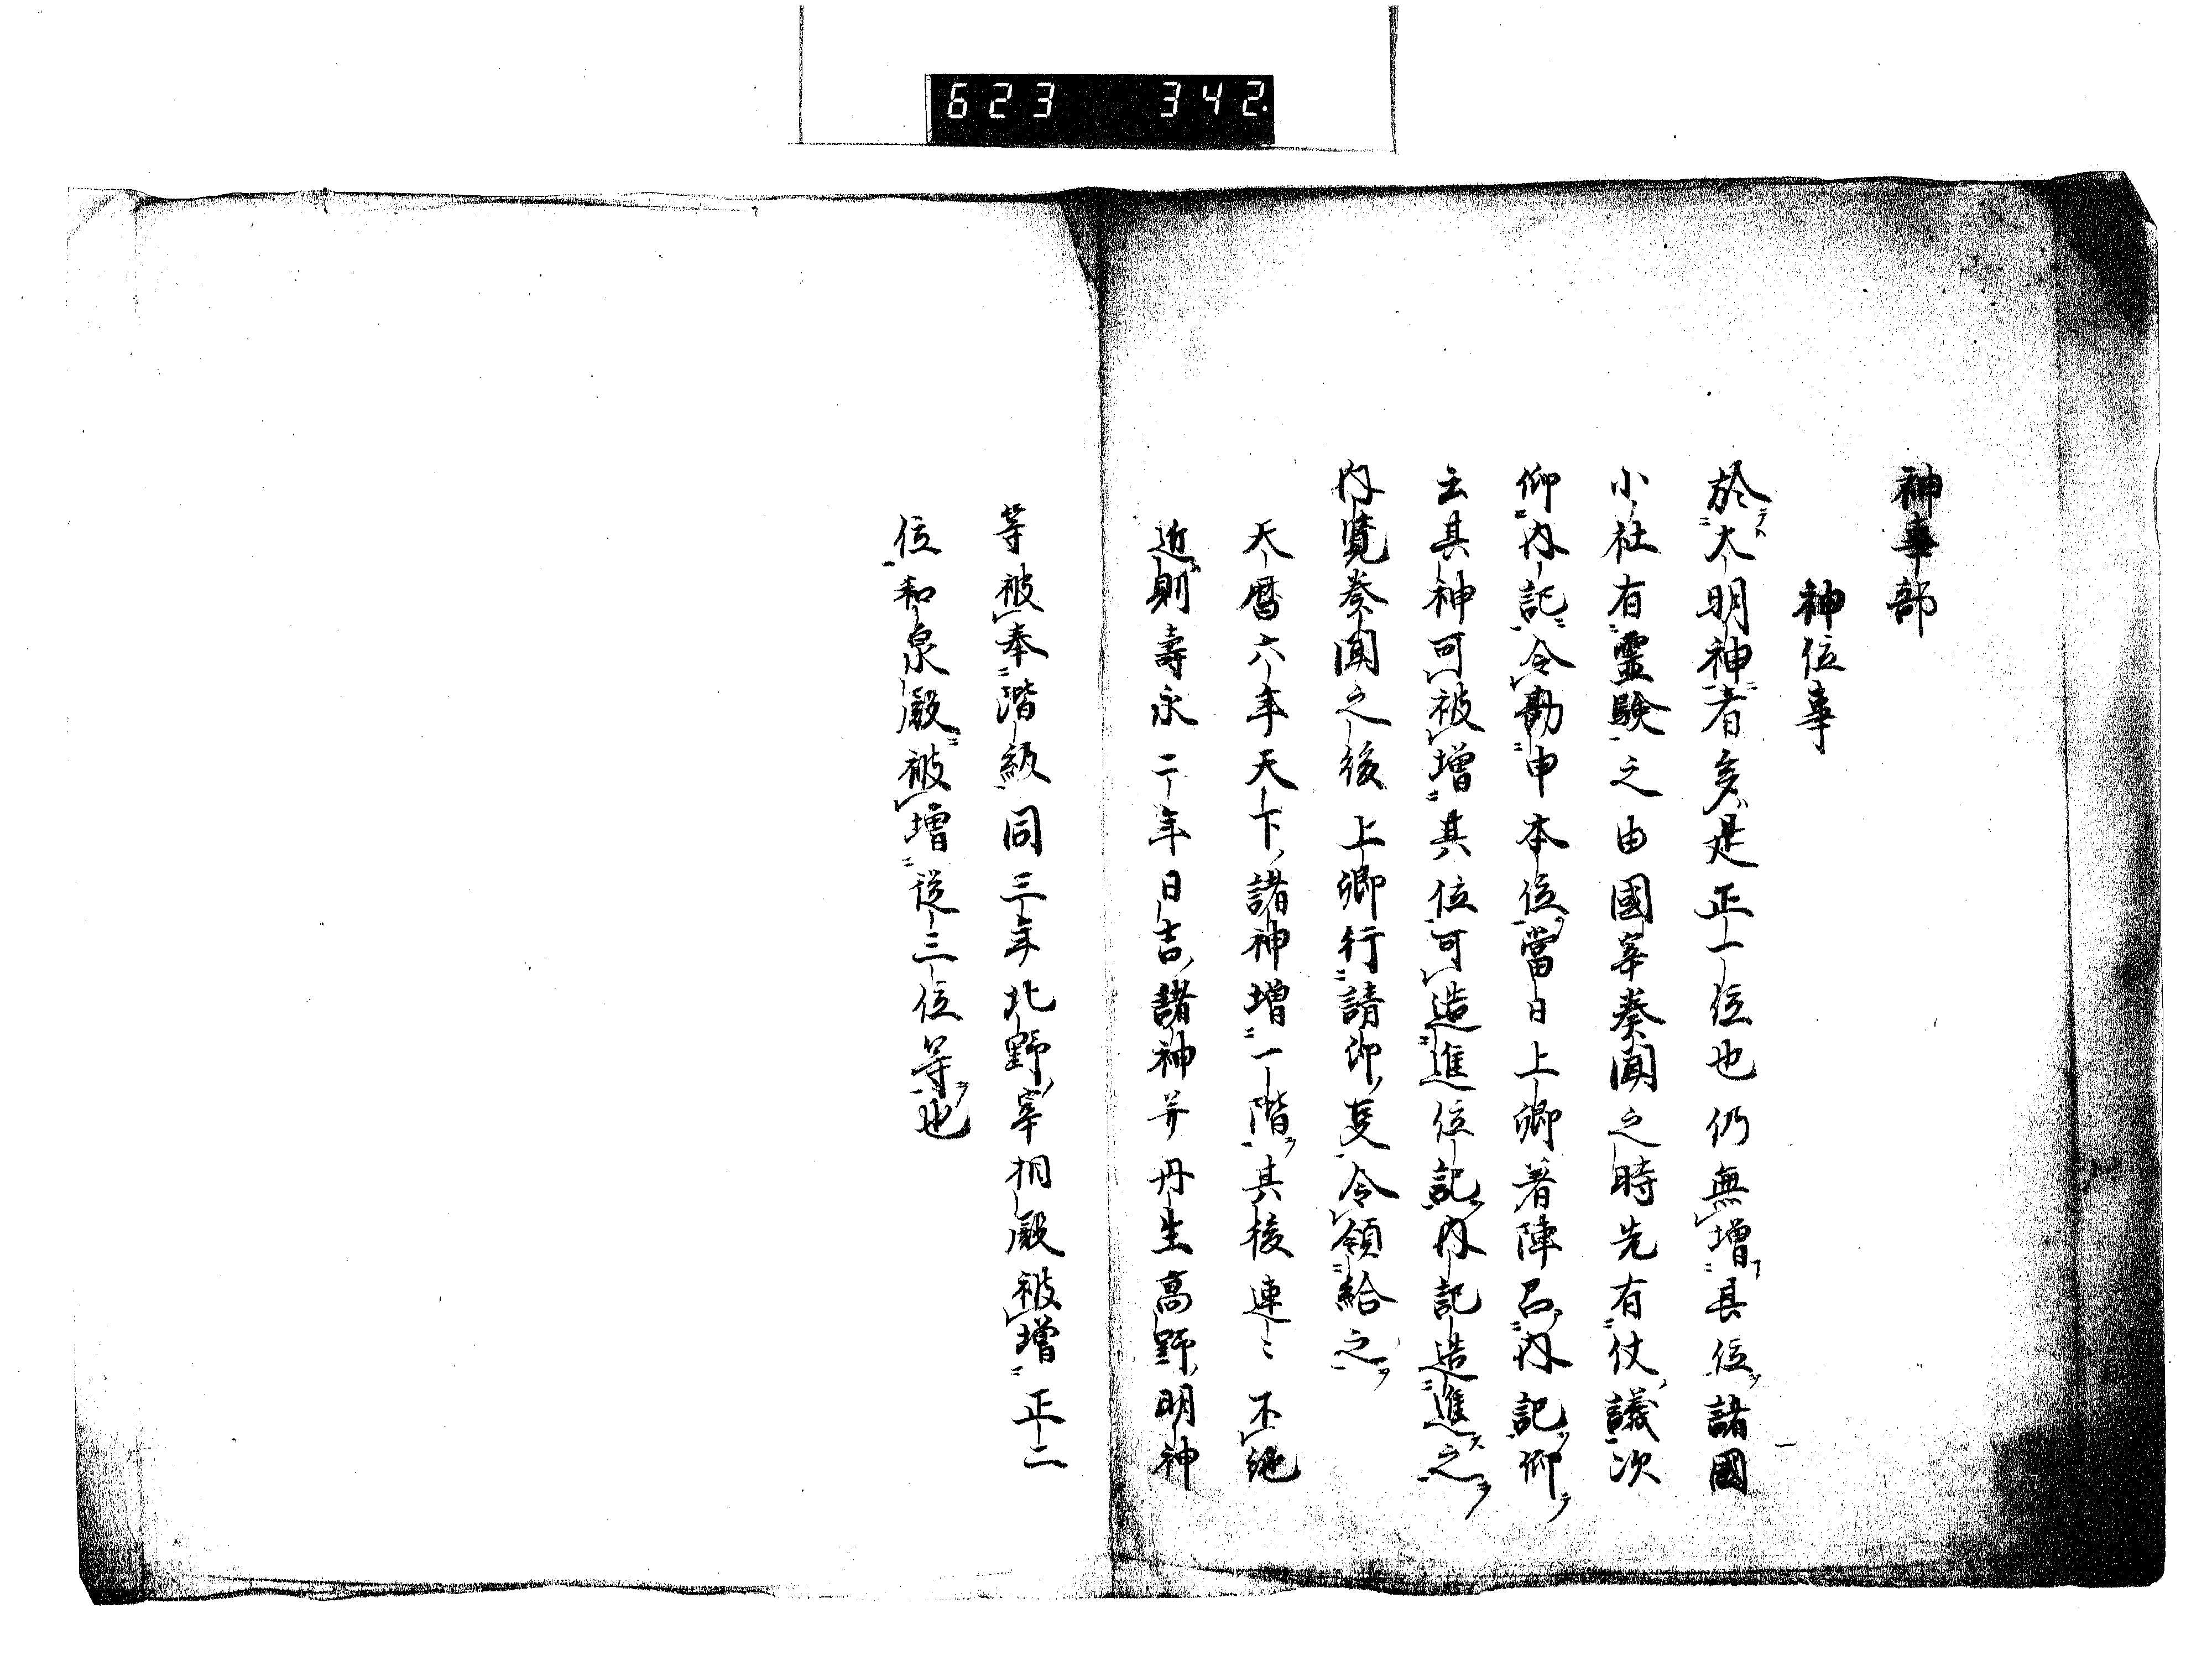 623 342.
神事部
神位事
於大明神者多是正一位也仍無増其位諸國
小社有靈驗之由國宰奏聞之時先有仗議次
仰内記令勘申本位當日上卿著陣召内記仰
云其神可被増其位可造進位記内記造進之
内覽奏聞之後上卿行請印更令領給之
天暦六年天下諸神増一階其後連〻不絶
近則壽永二年日吉諸神并丹生高野明神
等被奉階級同三年北野宰相殿被増正二
位和泉殿被増從三位等也